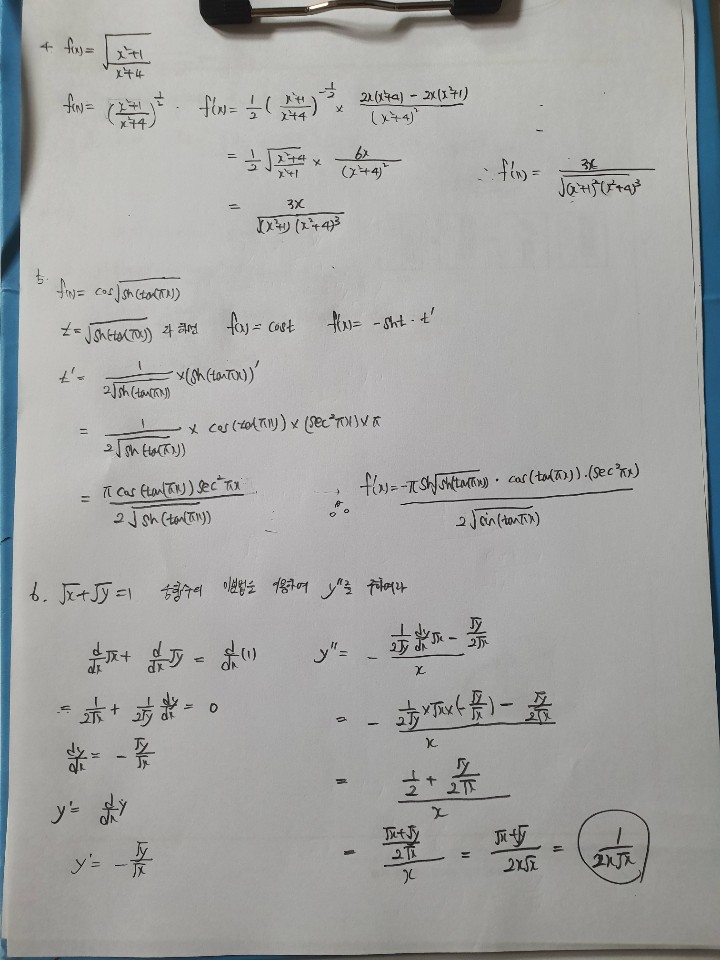 4 f(x) = √((x²+1)/(x²+4))
f(x) = ((x²+1)/(x²+4))^(1/2) . f'(x) = 1/2 ((x²+1)/(x²+4))^(-1/2) × (2x(x²+4) - 2x(x²+1))/(x²+4)²
= 1/2 √((x²+4)/(x²+1)) × 6x/(x²+4)²
∴ f'(x) = 3x/√((x²+1)²(x²+4)³)
= 3x/√((x²+1)(x²+4)³)
5. f(x) = cos√(sin(tan(πx)))
t = √(sin(tan(πx))) 라 하면 f(x) = cost f'(x) = -sint · t'
t' = 1/(2√(sin(tan(πx)))) × (sin(tan(πx)))'
= 1/(2√(sin(tan(πx)))) × cos(tan(πx)) × (sec²πx) × π
= π cos(tan(πx)) sec²πx/(2√(sin(tan(πx))))
∴ f'(x) = -π sin√(sin(tan(πx))) · cos(tan(πx)) · (sec²πx)/(2√(sin(tanπx)))
6. √x + √y = 1 음함수의 미분법을 이용하여 y''을 구하여라
d/dx √x + d/dx √y = d/dx (1)
= 1/(2√x) + 1/(2√y) dy/dx = 0
dy/dx = - √y/√x
y' = d/dx y
y' = - √y/√x
y'' = - (1/(2√y) dy/dx √x - √y/(2√x))/x
= - (1/(2√y) × √x × (-√y/√x) - √y/(2√x))/x
= (1/2 + √y/(2√x))/x
= ((√x+√y)/(2√x))/x = (√x+√y)/(2x√x) = 1/(2x√x)